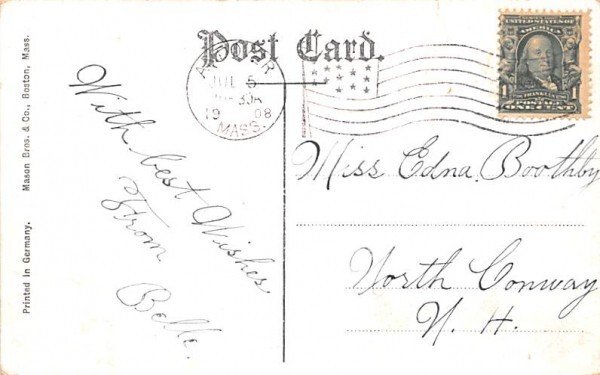 Post Card.
JUL 5
1908
MASS.
SERIES 1902
UNITED STATES OF
AMERICA
FRANKLIN
POSTAGE
1 1
ONE CENT
Mason Bros. & Co., Boston, Mass.
Printed in Germany.
With best Wishes
From
Belle.
Miss Edna Boothby
North Conway
N. H.